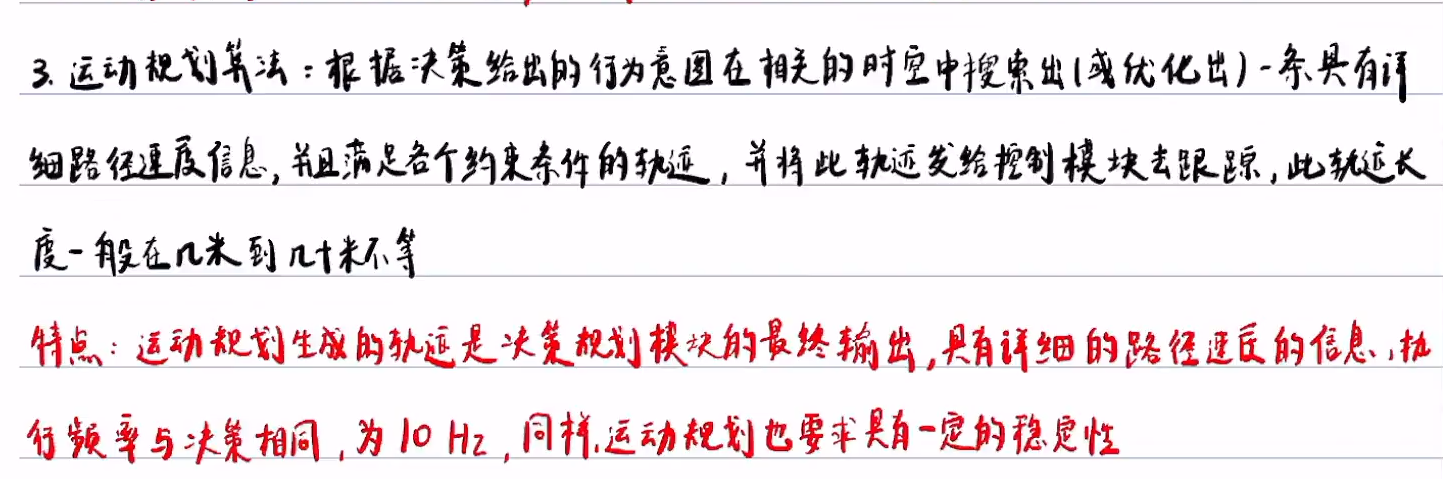 3. 运动规划算法：根据决策给出的行为意图在相关的时空中搜索出(或优化出)一条具有详
细路径速度信息,并且满足各个约束条件的轨迹，并将此轨迹发给控制模块去跟踪,此轨迹长
度一般在几米到几十米不等
特点：运动规划生成的轨迹是决策规划模块的最终输出,具有详细的路径速度的信息,执
行频率与决策相同,为10 Hz,同样,运动规划也要求具有一定的稳定性